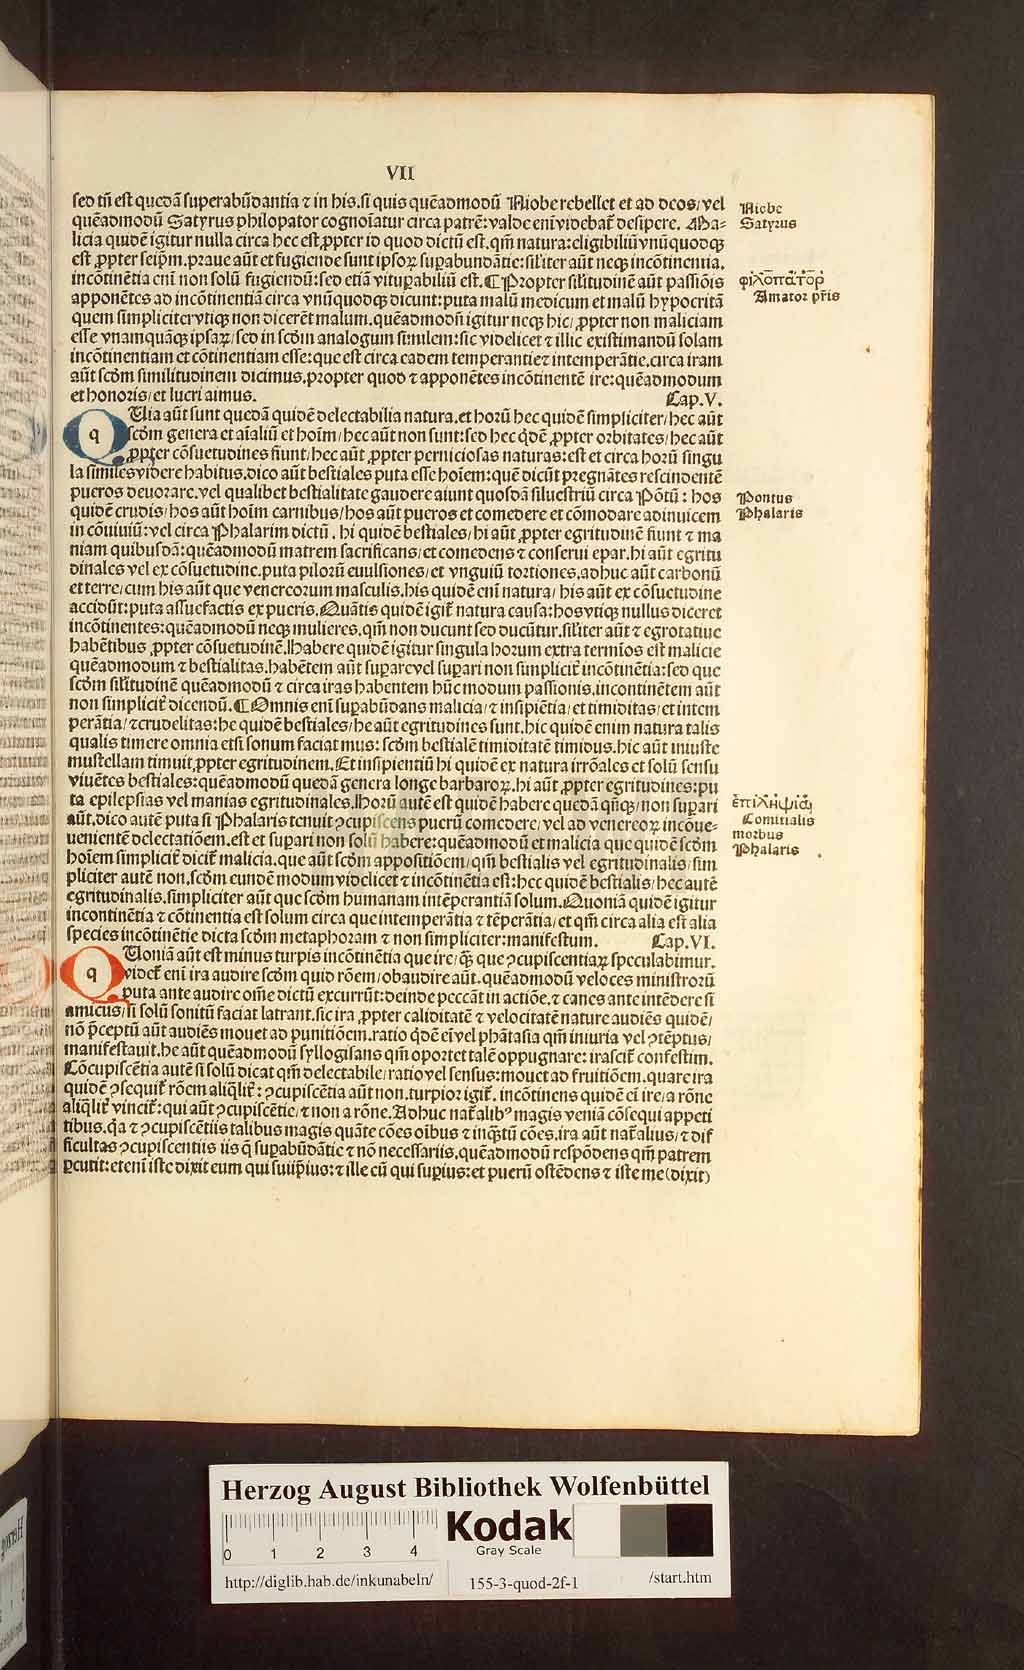 VII
sed tñ est quedã superabũdantia ⁊ in his. si quis quẽadmodũ Niobe rebellet et ad deos/vel
quẽadmodũ Satyrus philopator cognoĩatur circa patrẽ: valde enĩ videbat̃ desipere. Ma-
licia quidẽ igitur nulla circa hec est ꝓpter id quod dictũ est. qm̃ natura: eligibiliũ vnũquodqꝫ
est ꝓpter seip̃m. praue aũt et fugiende sunt ipsoꝝ suꝑabundãtie: sil̃iter aũt neqꝫ incõtinentia.
incõtinẽtia enĩ non solũ fugiendũ: sed etiã vituꝑabiliũ est. ¶ Propter sil̃itudinẽ aũt passiõis
apponẽtes ad incõtinentiã circa vnũquodqꝫ dicunt: puta malũ medicum et malũ hypocritã
quem simpliciter vtiqꝫ non dicerẽt malum. quẽadmodũ igitur neqꝫ hic/ ꝓpter non maliciam
esse vnamquãqꝫ ipsaꝝ/ sed in scõm analogum similem: sic videlicet ⁊ illic existimandũ solam
incõtinentiam et cõtinentiam esse: que est circa eadem temperantie ⁊ intemperãtie. circa iram
aũt scõm similitudinem dicimus. propter quod ⁊ apponẽtes incõtinentẽ ire: quẽadmodum
et honoris/ et lucri aimus. Cap.V.
q Uia aũt sunt quedã quidẽ delectabilia natura. et horũ hec quidẽ simpliciter/ hec aũt
scõm genera et aĩaliũ et hoĩm/ hec aũt non sunt: sed hec q̃dẽ ꝓpter orbitates/ hec aũt
ꝓpter cõsuetudines fiunt/ hec aũt ꝓpter perniciosas naturas: est et circa horũ singu
la similes videre habitus. dico aũt bestiales puta esse hoĩem: quẽ dicũt pregnãtes rescindentẽ
pueros deuorare. vel qualibet bestialitate gaudere aiunt quosdã siluestriũ circa Põtũ: hos
quidẽ crudis/ hos aũt hoĩm carnibus/ hos aũt pueros et comedere et cõmodare adinuicem
in cõuiuiũ: vel circa Phalarim dictũ. hi quidẽ bestiales/ hi aũt ꝓpter egritudinẽ fiunt ⁊ ma
niam quibusdã: quẽadmodũ matrem sacrificans/ et comedens ⁊ conserui epar. hi aũt egritu
dinales vel ex cõsuetudine. puta pilorũ euulsiones/ et vnguiũ tortiones. adhuc aũt carbonũ
et terre/ cum his aũt que venereorum masculis. his quidẽ enĩ natura/ his aũt ex cõsuetudine
accidũt: puta assuefactis ex pueris. Quãtis quidẽ igit̃ natura causa: hos vtiqꝫ nullus diceret
incõtinentes: quẽadmodũ neqꝫ mulieres. qm̃ non ducunt sed ducũtur. sil̃iter aũt ⁊ egrotatiue
habẽtibus ꝓpter cõsuetudinẽ. Habere quidẽ igitur singula horum extra termĩos est malicie
quẽadmodum ⁊ bestialitas. habẽtem aũt suꝑare vel suꝑari non simplicit̃ incõtinẽtia: sed que
scõm sil̃itudinẽ quẽadmodũ ⁊ circa iras habentem hũc modum passionis. incontinẽtem aũt
non simplicit̃ dicendũ. ¶ Omnis enĩ suꝑabũdans malicia/ ⁊ insipiẽtia/ et timiditas/ et intem
perãtia/ ⁊ crudelitas: he quidẽ bestiales/ he aũt egritudines sunt. hic quidẽ enim natura talis
qualis timere omnia etsi sonum faciat mus: scõm bestialẽ timiditatẽ timidus. hic aũt iniuste
mustellam timuit ꝓpter egritudinem. Et insipientiũ hi quidẽ ex natura irrõales et solũ sensu
viuẽtes bestiales: quẽadmodũ quedã genera longe barbaroꝝ. hi aũt ꝓpter egritudines: pu
ta epilepsias vel manias egritudinales. Horũ autẽ est quidẽ habere quedã qñqꝫ/ non suꝑari
aũt. dico autẽ puta si Phalaris tenuit ꝯcupiscens puerũ comedere/ vel ad venereoꝝ incõue-
uenientẽ delectatiõem. est et suꝑari non solũ habere: quẽadmodũ et malicia que quidẽ scõm
hoĩem simplicit̃ dicit̃ malicia. que aũt scõm appositiõem/ qm̃ bestialis vel egritudinalis/ sim
pliciter autẽ non. scõm eundẽ modum videlicet ⁊ incõtinẽtia est: hec quidẽ bestialis/ hec autẽ
egritudinalis. simpliciter aũt que scõm humanam intẽperantiã solum. Quoniã quidẽ igitur
incontinẽtia ⁊ cõtinentia est solum circa que intemperãtia ⁊ tẽperãtia/ et qm̃ circa alia est alia
species incõtinẽtie dicta scõm metaphoram ⁊ non simpliciter: manifestum. Cap.VI.
q Uoniã aũt est minus turpis incõtinẽtia que ire/ q̃ꝫ que ꝯcupiscentiaꝝ speculabimur.
videt̃ enĩ ira audire scõm quid rõem/ obaudire aũt. quẽadmodũ veloces ministrorũ
puta ante audire om̃e dictũ excurrũt: deinde peccãt in actiõe. ⁊ canes ante intẽdere si
amicus/ si solũ sonitũ faciat latrant. sic ira ꝓpter caliditatẽ ⁊ velocitatẽ nature audiẽs quidẽ/
nõ p̃ceptũ aũt audiẽs mouet ad punitiõem. ratio q̃dẽ eĩ vel phãtasia qm̃ iniuria vel ꝯtẽptus/
manifestauit. he aũt quẽadmodũ syllogisans qm̃ oportet talẽ oppugnare: irascit̃ confestim.
Cõcupiscẽtia autẽ si solũ dicat qm̃ delectabile/ ratio vel sensus: mouet ad fruitiõem. quare ira
quidẽ ꝯsequit̃ rõem aliq̃lit̃: ꝯcupiscẽtia aũt non. turpior igit̃. incõtinens quidẽ eĩ ire/ a rõne
aliq̃lit̃ vincit̃: qui aũt ꝯcupiscẽtie/ ⁊ non a rõne. Adhuc nat̃alibꝰ magis veniã cõsequi appeti
tibus. q̃a ⁊ ꝯcupiscẽtiis talibus magis quãte cões oĩbus ⁊ inqꝫtũ cões. ira aũt nat̃alius/ ⁊ dif
ficultas ꝯcupiscentiis iis q̃ suꝑabũdãtie ⁊ nõ necessariis. quẽadmodũ respõdens qm̃ patrem
ꝑcutit: etenĩ iste dixit eum qui suiip̃ius: ⁊ ille cũ qui suꝑius: et puerũ ostẽdens ⁊ iste me (dixit)
Niobe
Satyrus
φιλοπάτορ
Amator pr̃is
Pontus
Phalaris
ἐπιληψία
Comitialis
morbus
Phalaris
Herzog August Bibliothek Wolfenbüttel
0 1 2 3 4
Kodak
Gray Scale
http://diglib.hab.de/inkunabeln/ 155-3-quod-2f-1 /start.htm